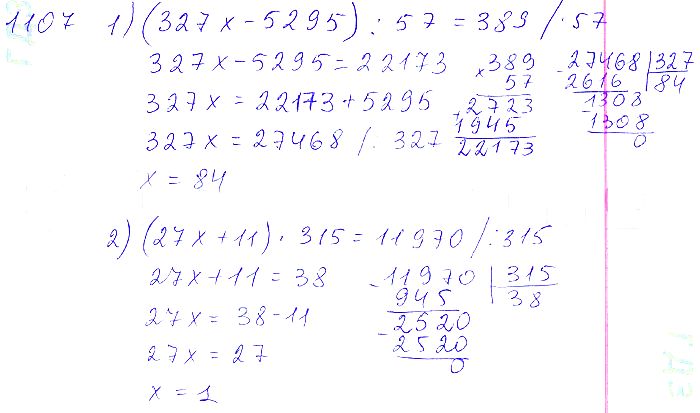 1107 1) (327x - 5295) : 57 = 389 / · 57
327x - 5295 = 22173
327x = 22173 + 5295
327x = 27468 / : 327
x = 84
× 389
57
+ 2723
1945
22173
- 27468 | 327
2616 84
- 1308
1308
0
2) (27x + 11) · 315 = 11970 / : 315
27x + 11 = 38
27x = 38 - 11
27x = 27
x = 1
- 11970 | 315
945 38
- 2520
2520
0